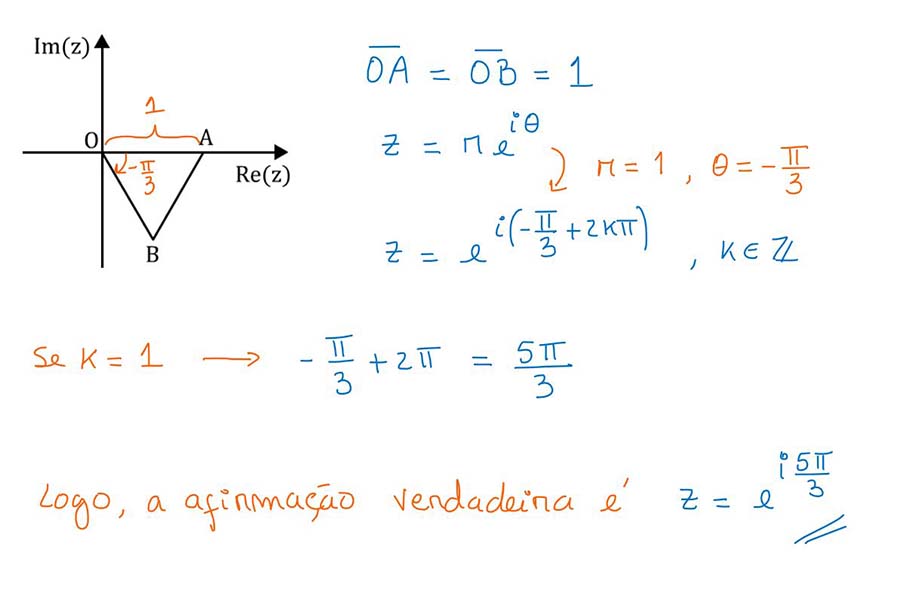 Im(z)
1
O
A
-π/3
Re(z)
B
O̅A̅ = O̅B̅ = 1
z = r e^{iθ}
r = 1 , θ = -π/3
z = e^{i(-π/3 + 2kπ)} , k ∈ ℤ
Se k = 1 → -π/3 + 2π = 5π/3
Logo, a afirmação verdadeira é z = e^{i 5π/3}